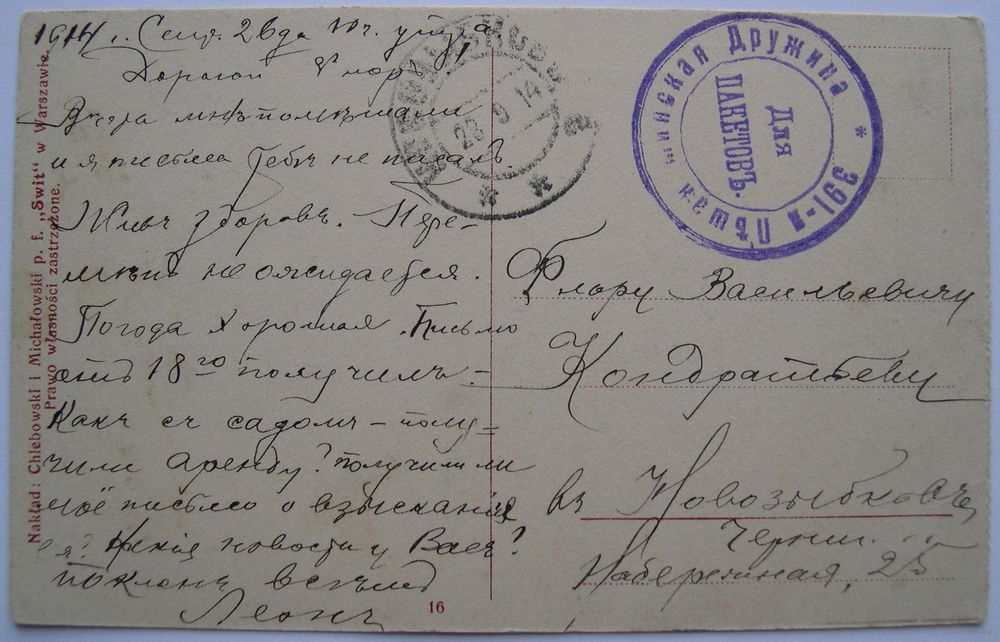 1914 г. Сент. 26го 10 ч. утра
Дорогой Флоръ
Вчера мнѣ помѣшали
и я письма тебѣ не писалъ.
Живъ здоровъ. Пере-
мѣнъ не ожидается.
Погода хорошая. Письмо
отъ 18го получилъ. -
Какъ съ садомъ - полу-
чили аренду? получили ли
моё письмо о взысканія
Какія новости у Васъ?
поклонъ всѣмъ
Леонъ
Nakład: Chlebowski i Michałowski p. f. „Świt" w Warszawie.
Prawo własności zastrzeżone.
16
23 9 14
391-я Пѣшая
ская Дружина *
Для
ПАКЕТОВЪ.
Флору Васильевичу
Кондратьеву
въ Новозыбковъ,
Черниг.
Набережная, 25